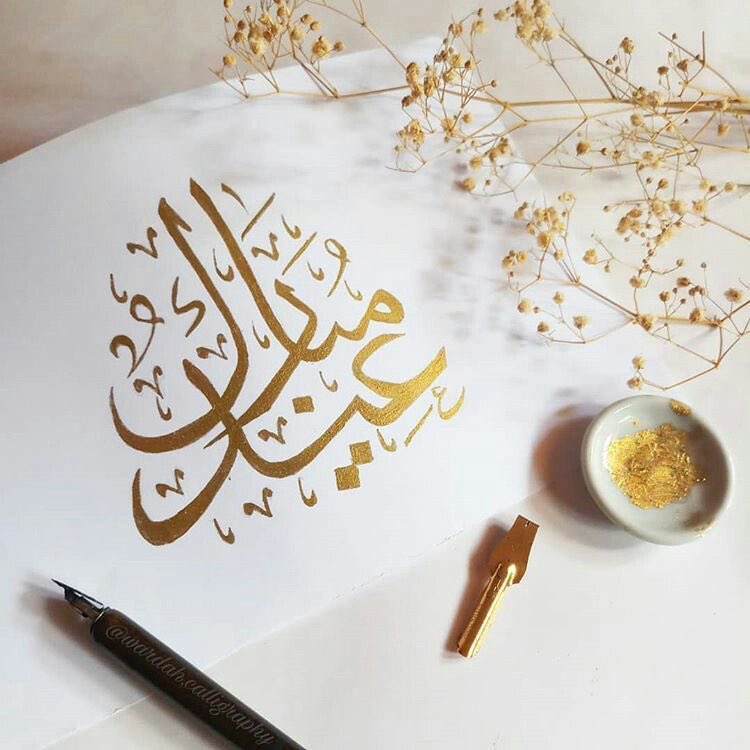 عيد مبارك
@wardah.calligraphy